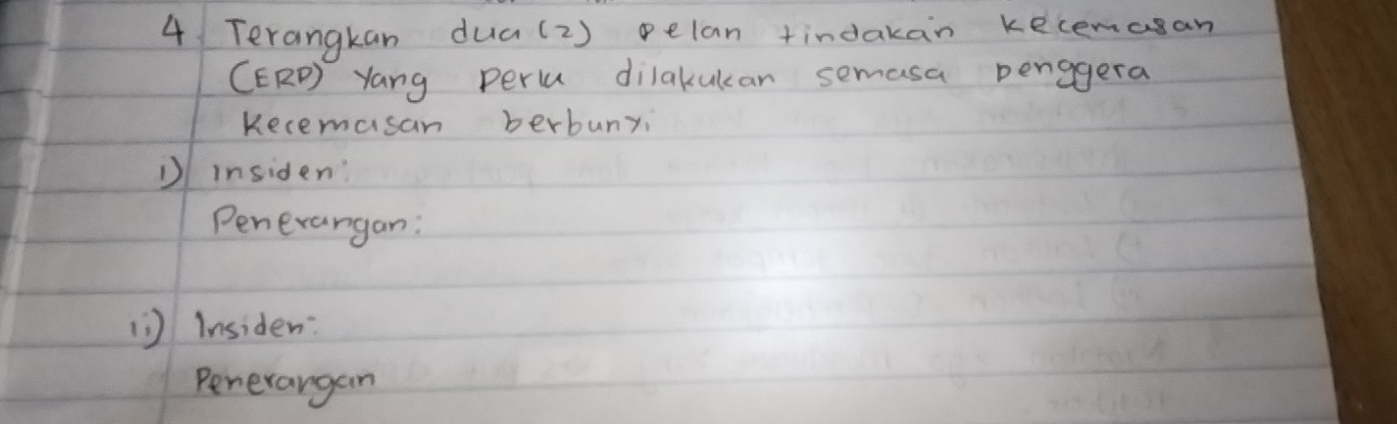 4. Terangkan dua (2) pelan tindakan kecemasan
(ERP) Yang perlu dilakukan semasa penggera
Kecemasan berbunyi
i) insiden:
Penerangan:
ii) Insiden:
Penerangan